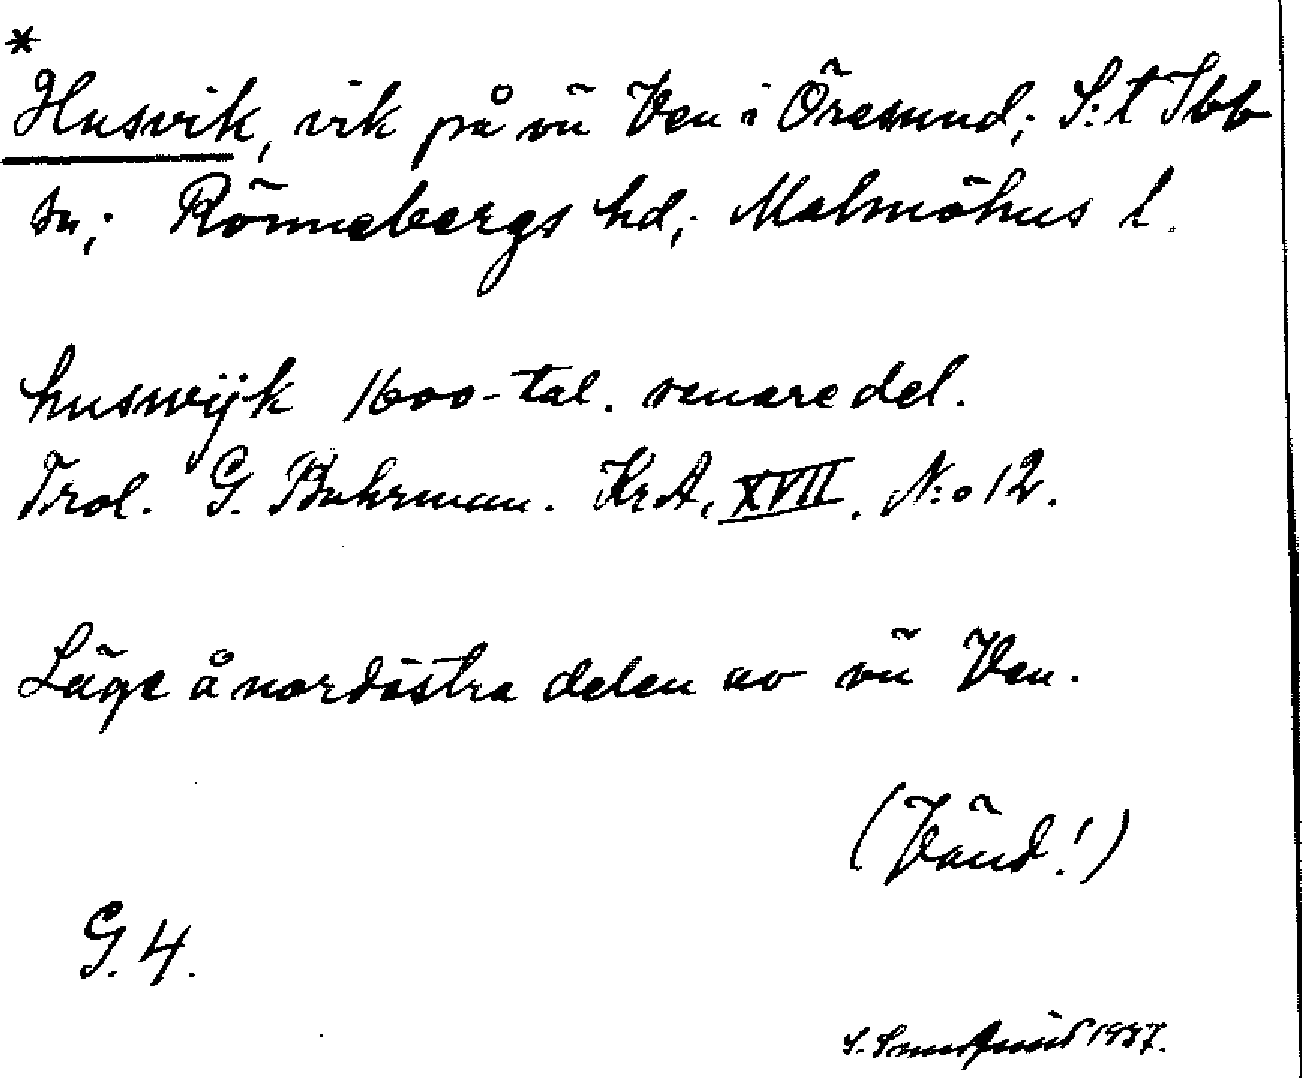 *
Husvik, vik på ön Ven i Öresund; S:t Ibb
sn; Rönnebergs hd; Malmöhus l.
huswijk 1600-tal. senare del.
Trol. G. Buhrman. KrA, XVII. N:o 12.
Läge å nordöstra delen av ön Ven.
(Vänd!)
G. 4.
S. 1937.